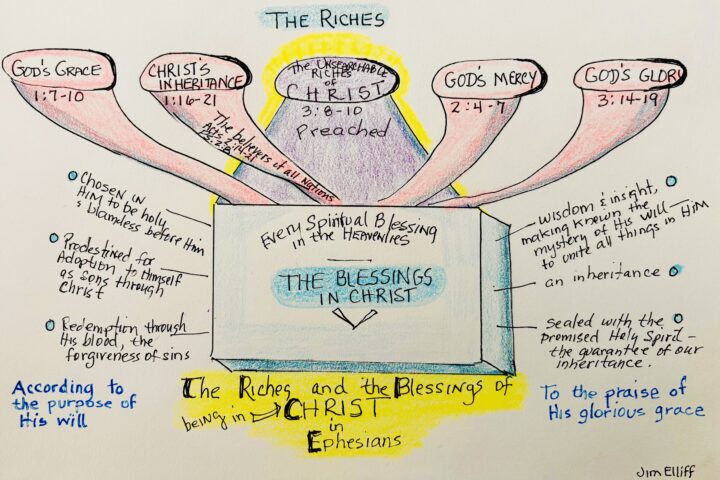 THE RICHES
GOD'S GRACE
1:7-10
CHRIST'S
INHERITANCE
1:16-21
The believers of all Nations
The UNSEARCHABLE
RICHES
of
CHRIST
3:8-10
Preached
GOD'S MERCY
2:4-7
GOD'S GLORY
3:14-19
Every Spiritual Blessing
in the HEAVENLIES
THE BLESSINGS
IN CHRIST
Chosen in
HIM to be holy
& blameless before Him
Predestined for
Adoption to Himself
as sons through
Christ
Redemption through
His blood, the
forgiveness of sins
According to
the purpose of
His will
wisdom & insight,
making known the
mystery of His will
to unite all things in HIM
an inheritance
sealed with the
promised Holy Spirit –
the guarantee of our
inheritance.
To the praise of
His glorious grace
The Riches and the Blessings of
being in CHRIST
in
Ephesians
Jim Elliff